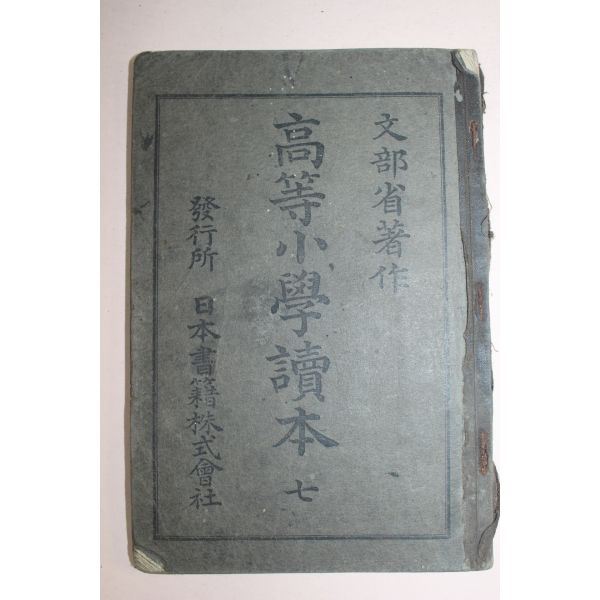 文部省著作
高等小學讀本 七
發行所 日本書籍株式會社